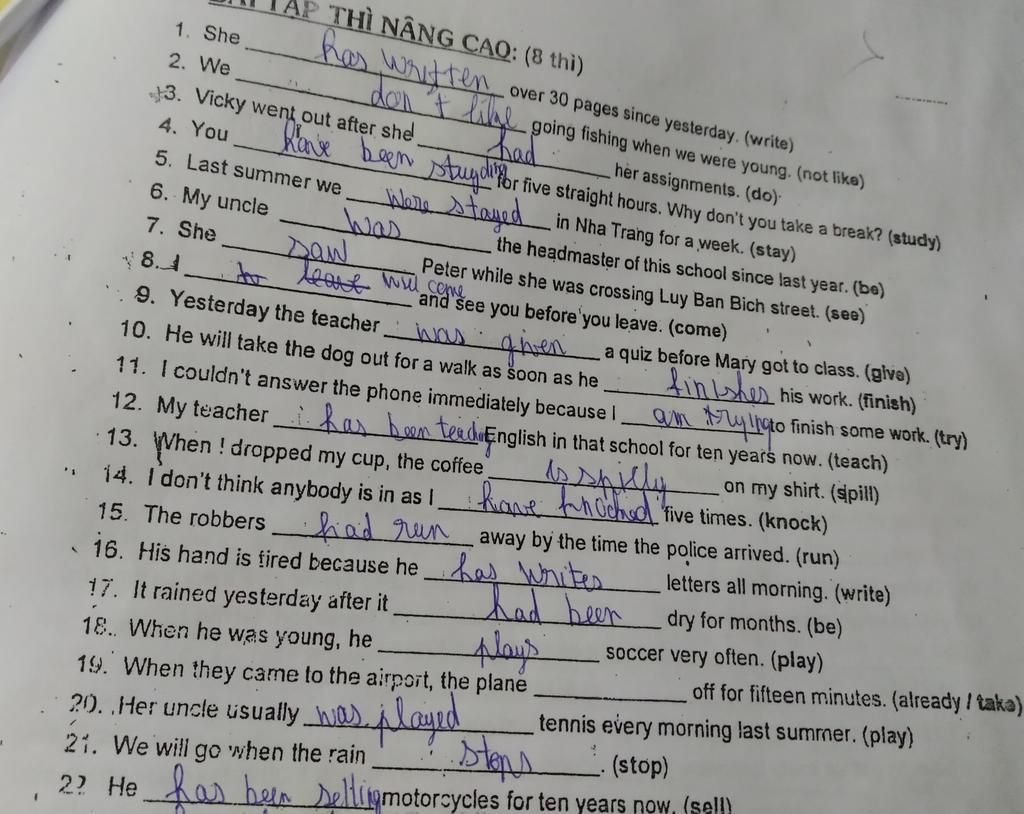 BÀI TẬP THÌ NÂNG CAO: (8 thì)
1. She has written over 30 pages since yesterday. (write)
2. We don't like going fishing when we were young. (not like)
3. Vicky went out after she had her assignments. (do)
4. You have been studying for five straight hours. Why don't you take a break? (study)
5. Last summer we were stayed in Nha Trang for a week. (stay)
6. My uncle was the headmaster of this school since last year. (be)
7. She saw Peter while she was crossing Luy Ban Bich street. (see)
8. I will come and see you before you leave. (come)
9. Yesterday the teacher was given a quiz before Mary got to class. (give)
10. He will take the dog out for a walk as soon as he finishes his work. (finish)
11. I couldn't answer the phone immediately because I am trying to finish some work. (try)
12. My teacher has been teaching English in that school for ten years now. (teach)
13. When I dropped my cup, the coffee is spilly on my shirt. (spill)
14. I don't think anybody is in as I have knocked five times. (knock)
15. The robbers had run away by the time the police arrived. (run)
16. His hand is tired because he has writes letters all morning. (write)
17. It rained yesterday after it had been dry for months. (be)
18. When he was young, he plays soccer very often. (play)
19. When they came to the airport, the plane ____ off for fifteen minutes. (already / take)
20. Her uncle usually was played tennis every morning last summer. (play)
21. We will go when the rain stops. (stop)
22 He has been selling motorcycles for ten years now. (sell)